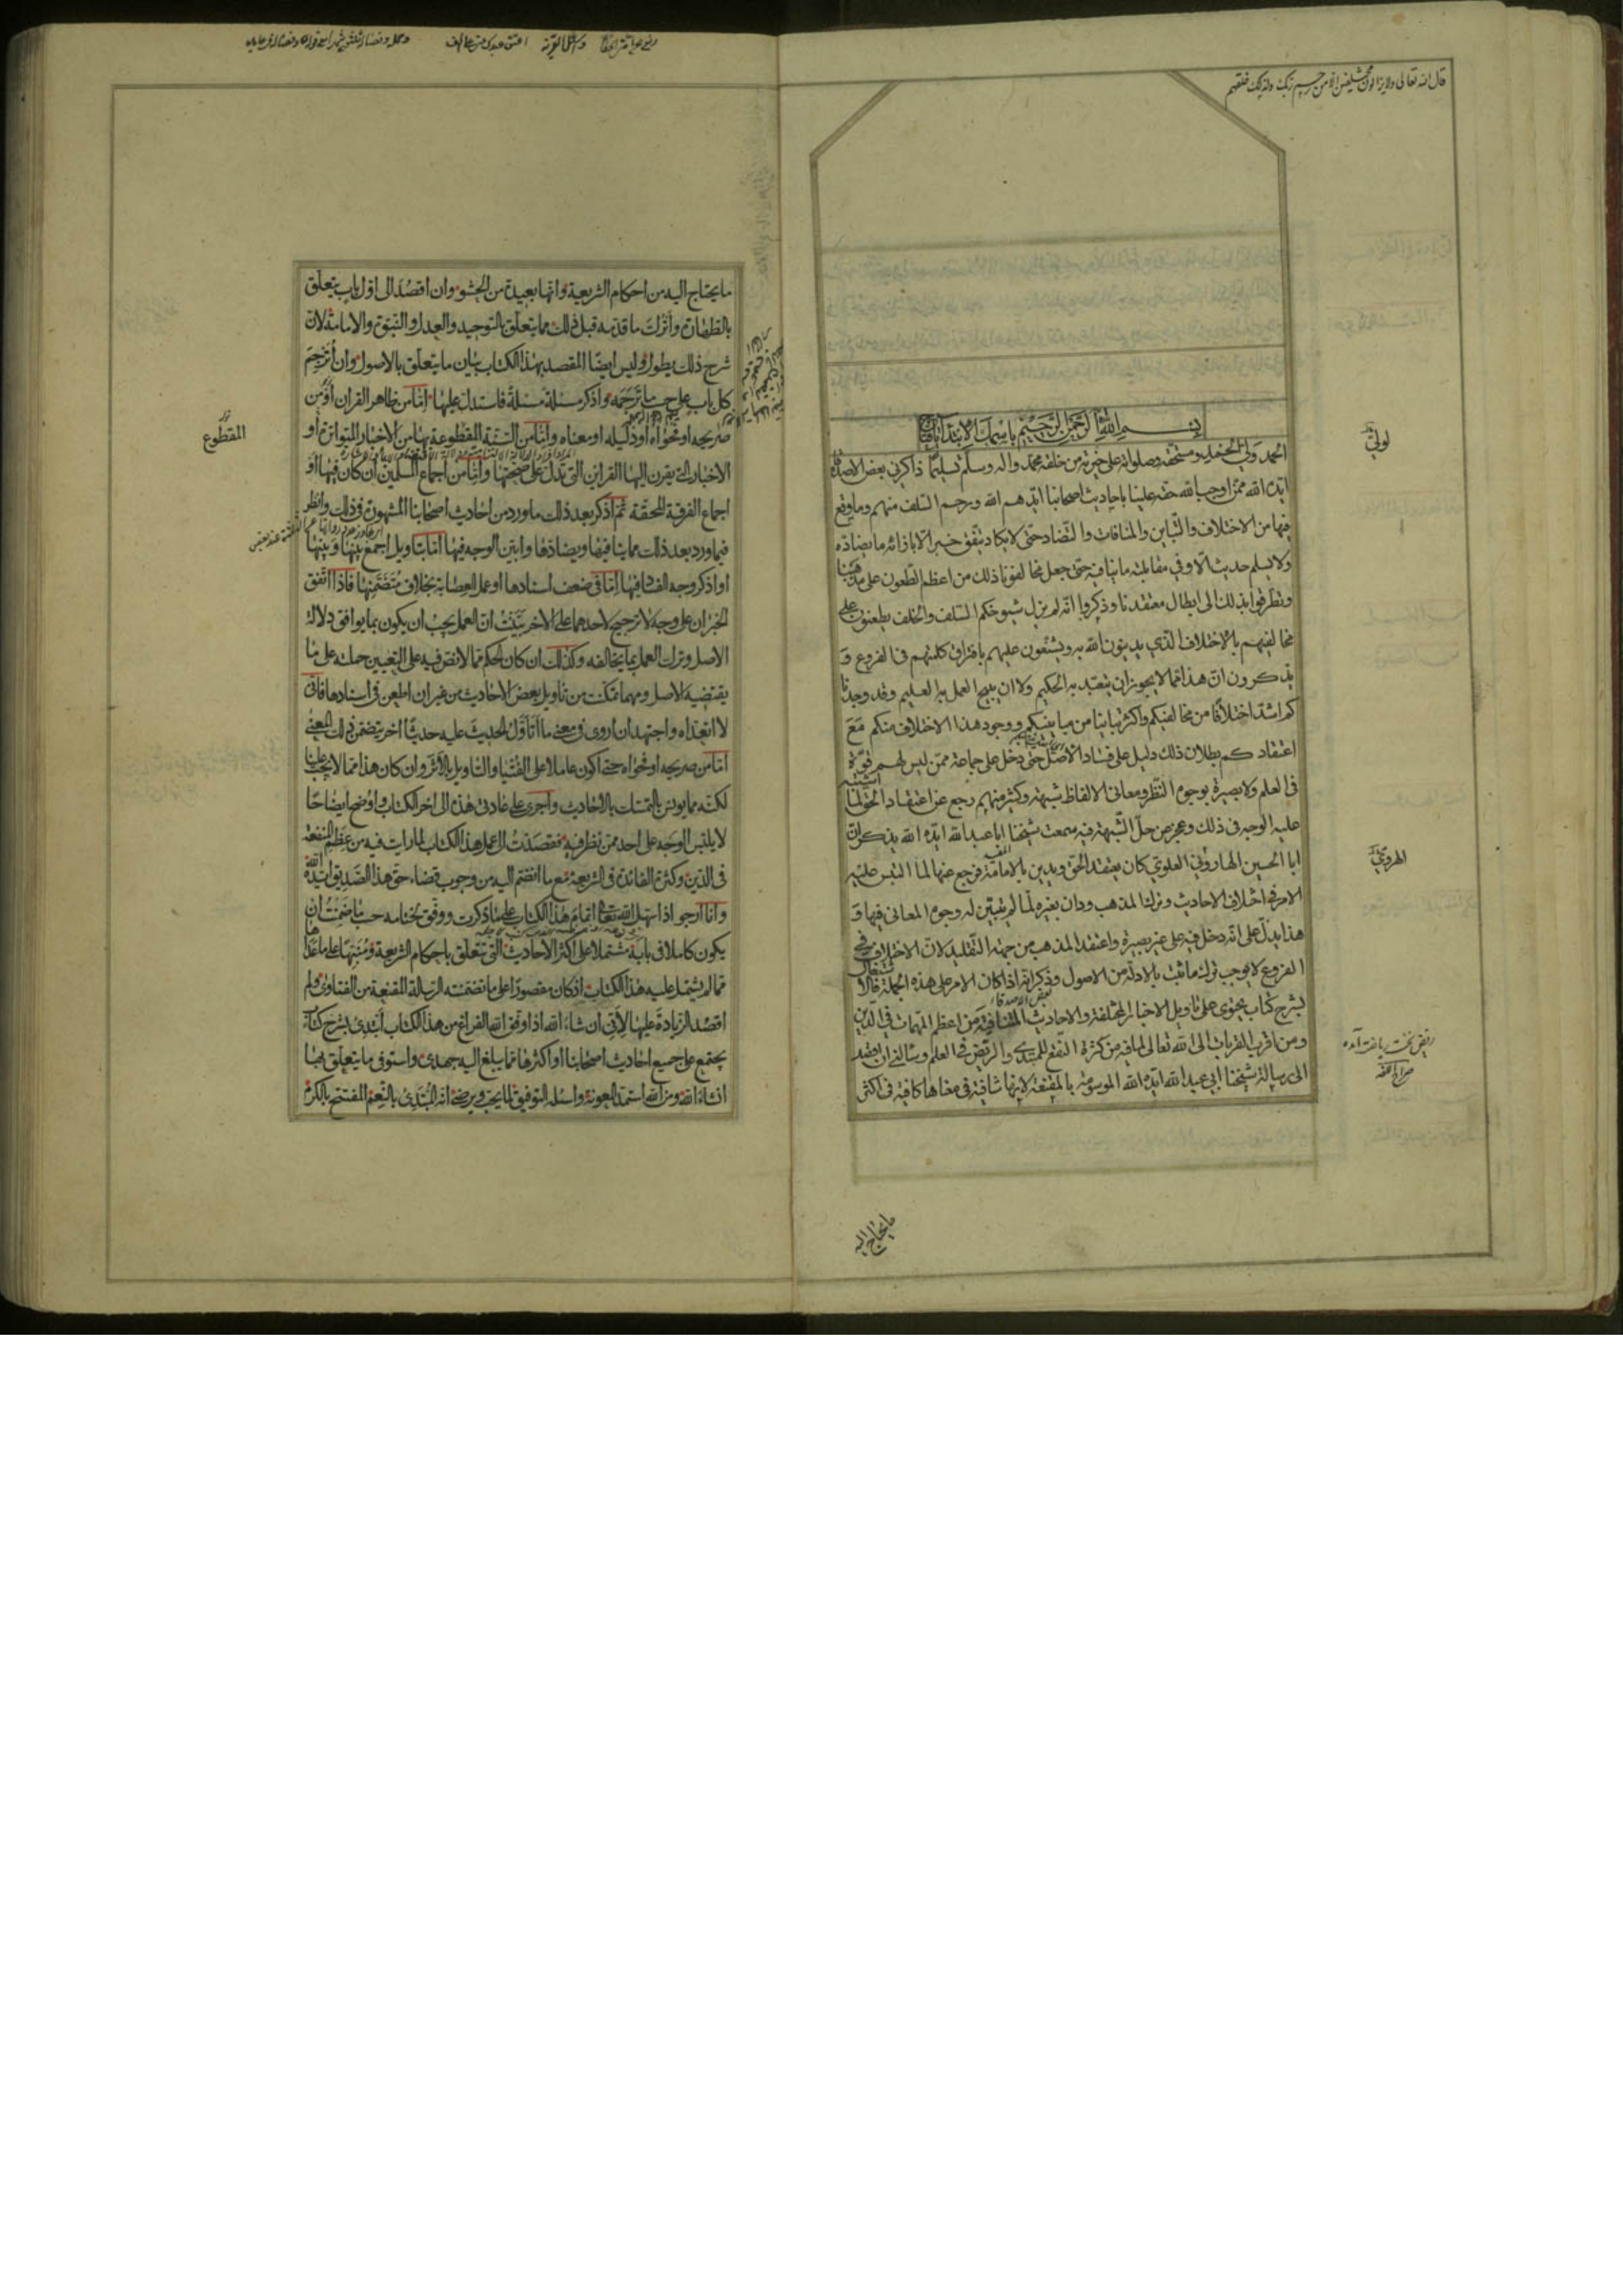 قال الله تعالى ولا يزالون مختلفين الا من رحم ربك ولذلك خلقهم
بسم الله الرحمن الرحيم باسمك الابتداء يا فتاح
الحمد لله ولي الحمد ومستحقه وصلواته على خيرته من خلقه محمد واله وسلم تسليما ذاكرني بعض الاصدقاء
ايده الله ممن اوجب الله حقه علينا باحاديث اصحابنا ايدهم الله ورحم السلف منهم وما وقع
فيها من الاختلاف والتباين والمنافات والتضاد حتى لا يكاد يتفق خبر الا بازائه ما يضاده
ولا يسلم حديث الا وفي مقابلته ما ينافيه حتى جعل مخالفونا ذلك من اعظم الطعون على مذهبنا
وتطرقوا بذلك الى ابطال معتقدنا وذكروا انه لم يزل شيوخكم السلف والخلف يطعنون على
مخالفيهم بالاختلاف الذي يدينون الله به ويشنعون عليهم بافتراق كلمتهم في الفروع و
يذكرون ان هذا مما لا يجوز ان يتعبد به الحكيم ولا ان يبيح العمل به العليم وقد وجدنا
كم اشد اختلافا من مخالفيكم واكثر تباينا من مباينيكم ووجود هذا الاختلاف منكم مع
اعتقادكم بطلان ذلك دليل على فساد الاصل حتى دخل على جماعة ممن ليس لهم قوة
في العلم ولا بصيرة بوجوه النظر ومعاني الالفاظ شبهة وكثير منهم رجع عن اعتقاد الحق لما اشتبه
عليه الوجه في ذلك وعجز عن حل الشبهة فيه سمعت شيخنا ابا عبد الله ايده الله يذكر ان
ابا الحسين الهاروني العلوي كان يعتقد الحق ويدين بالامامة فرجع عنها لما التبس عليه
الامر في اختلاف الاحاديث وترك المذهب ودان بغيره لما لم يتبين له وجوه المعاني فيها و
هذا يدل على انه دخل فيه على غير بصيرة واعتقد المذهب من جهة التقليد لان الاختلاف في
الفروع لا يوجب ترك ما ثبت بالادلة من الاصول وذكر انه اذا كان الامر على هذه الجملة فالاشتغال
بشرح كتاب يحتوي على تاويل الاخبار المختلفة والاحاديث المتنافية من اعظم المهمات في الدين
ومن اقرب القربات الى الله تعالى لما فيه من كثرة النفع للمبتدي والريض في العلم وسالني ان اقصد
الى رسالة شيخنا ابي عبد الله ايده الله الموسومة بالمقنعة لانها شافية في معناها كافية في اكثر
ما يحتاج اليه
ما يحتاج اليه من احكام الشريعة وانها بعيدة من الحشو وان اقصد الى اول باب يتعلق
بالطهارة واترك ما قدمه قبل ذلك مما يتعلق بالتوحيد والعدل والنبوة والامامة لان
شرح ذلك يطول وليس ايضا المقصد بهذا الكتاب بيان ما يتعلق بالاصول وان اترجم
كل باب على حسب ما ترجمه واذكر مسئلة مسئلة فاستدل عليها اما من ظاهر القران او من
صريحه او فحواه او دليله او معناه واما من السنة المقطوعة بها من الاخبار المتواترة او
الاخبار التي يقرن اليها القراين التي تدل على صحتها واما من اجماع المسلمين ان كان فيها او
اجماع الفرقة المحقة ثم اذكر بعد ذلك ما ورد من احاديث اصحابنا المشهورة في ذلك وانظر
فيما ورد بعد ذلك مما ينافيها ويضادها وابين الوجه فيها اما بتاويل اجمع بينها وبينها
او اذكر وجه الفساد فيها اما في ضعف اسنادها او عمل العصابة بخلاف متضمنها فاذا اتفق
الخبران على وجه لا ترجيح لاحدهما على الاخر بينت ان العمل يجب ان يكون بما يوافق دلالة
الاصل وترك العمل بما يخالفه وكذلك ان كان الحكم مما لا نص فيه على التعيين حملته على ما
يقتضيه الاصل ومهما تمكنت من تاويل بعض الاحاديث من غير ان اطعن في اسنادها فاني
لا اتعداه واجتهد ان اروي في معنى ما اتاول الحديث عليه حديثا اخر يتضمن ذلك المعنى
اما من صريحه او فحواه حتى اكون عاملا على الفتيا والتاويل بالاثر وان كان هذا مما لا يجب علينا
لكنه مما يونس بالتمسك بالاحاديث واجري على عادتي هذه الى اخر الكتاب واوضح ايضاحا
لا يلتبس الوجه على احد ممن نظر فيه فقصدت الى عمل هذا الكتاب لما رايت فيه من عظم المنفعة
في الدين وكثرة الفائدة في الشريعة مع ما انضم اليه من وجوب قضاء حق هذا الصديق ايده الله
وانا ارجو اذا سهل الله تعالى اتمام هذا الكتاب على ما ذكرت ووفق لختامه حسب ما ضمنت ان
يكون كاملا في بابه مشتملا على اكثر الاحاديث التي تتعلق باحكام الشريعة ومنبها على ما عداها
مما لم يشتمل عليه هذا الكتاب اذ كان مقصورا على ما تضمنته الرسالة المقنعة من الفتاوى ولم
اقصد الزيادة عليها لاني ان شاء الله اذا وفق الله الفراغ من هذا الكتاب ابتدئ بشرح كتاب
يجتمع على جميع احاديث اصحابنا او اكثرها مما يبلغ اليه جهدي واستوفي ما يتعلق بها
ان شاء الله ومن الله استمد المعونة واسئله التوفيق لما يحب ويرضى انه المبتدئ بالنعم المفتتح بالكرم
المقطوع